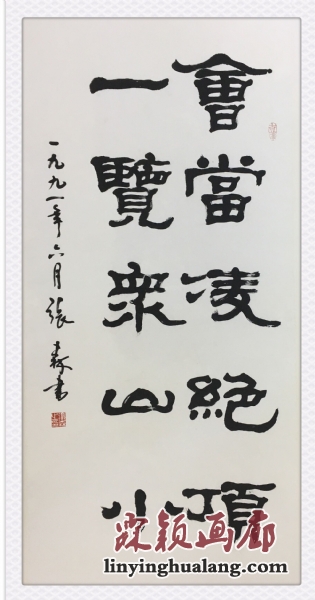 會當凌絕頂
一覽衆山小
一九九一年六月張森書
霖颖画廊
linyinghualang.com